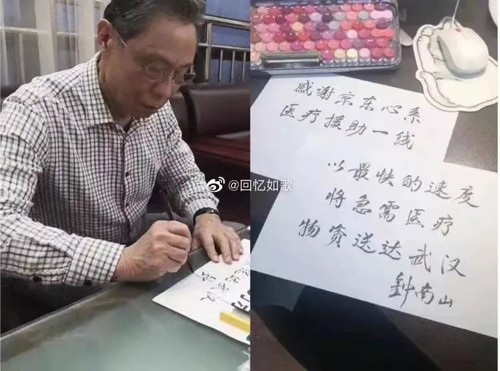 @回忆如歌
感谢京东心系
医疗援助一线
以最快的速度
将急需医疗
物资送达武汉
钟南山